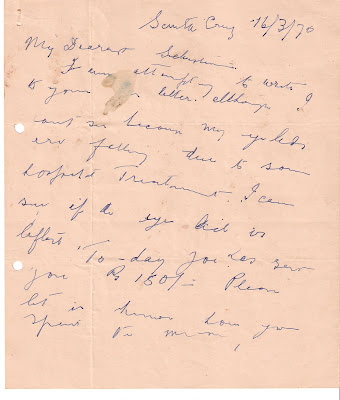 Santa Cruz 16/3/70
My Dearest
I am attempting to write
to you a letter. although I
can't see because my eye lids
are falling due to some
hospital Treatment. I can
see if the eye lid is
lifted. To-day Joe has sent
you Rs 150/- Please
let us know how you
spent the